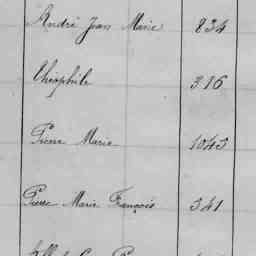 André Jean Marie 834
Théophile 316
Pierre Marie 1043
Pierre Marie François 341